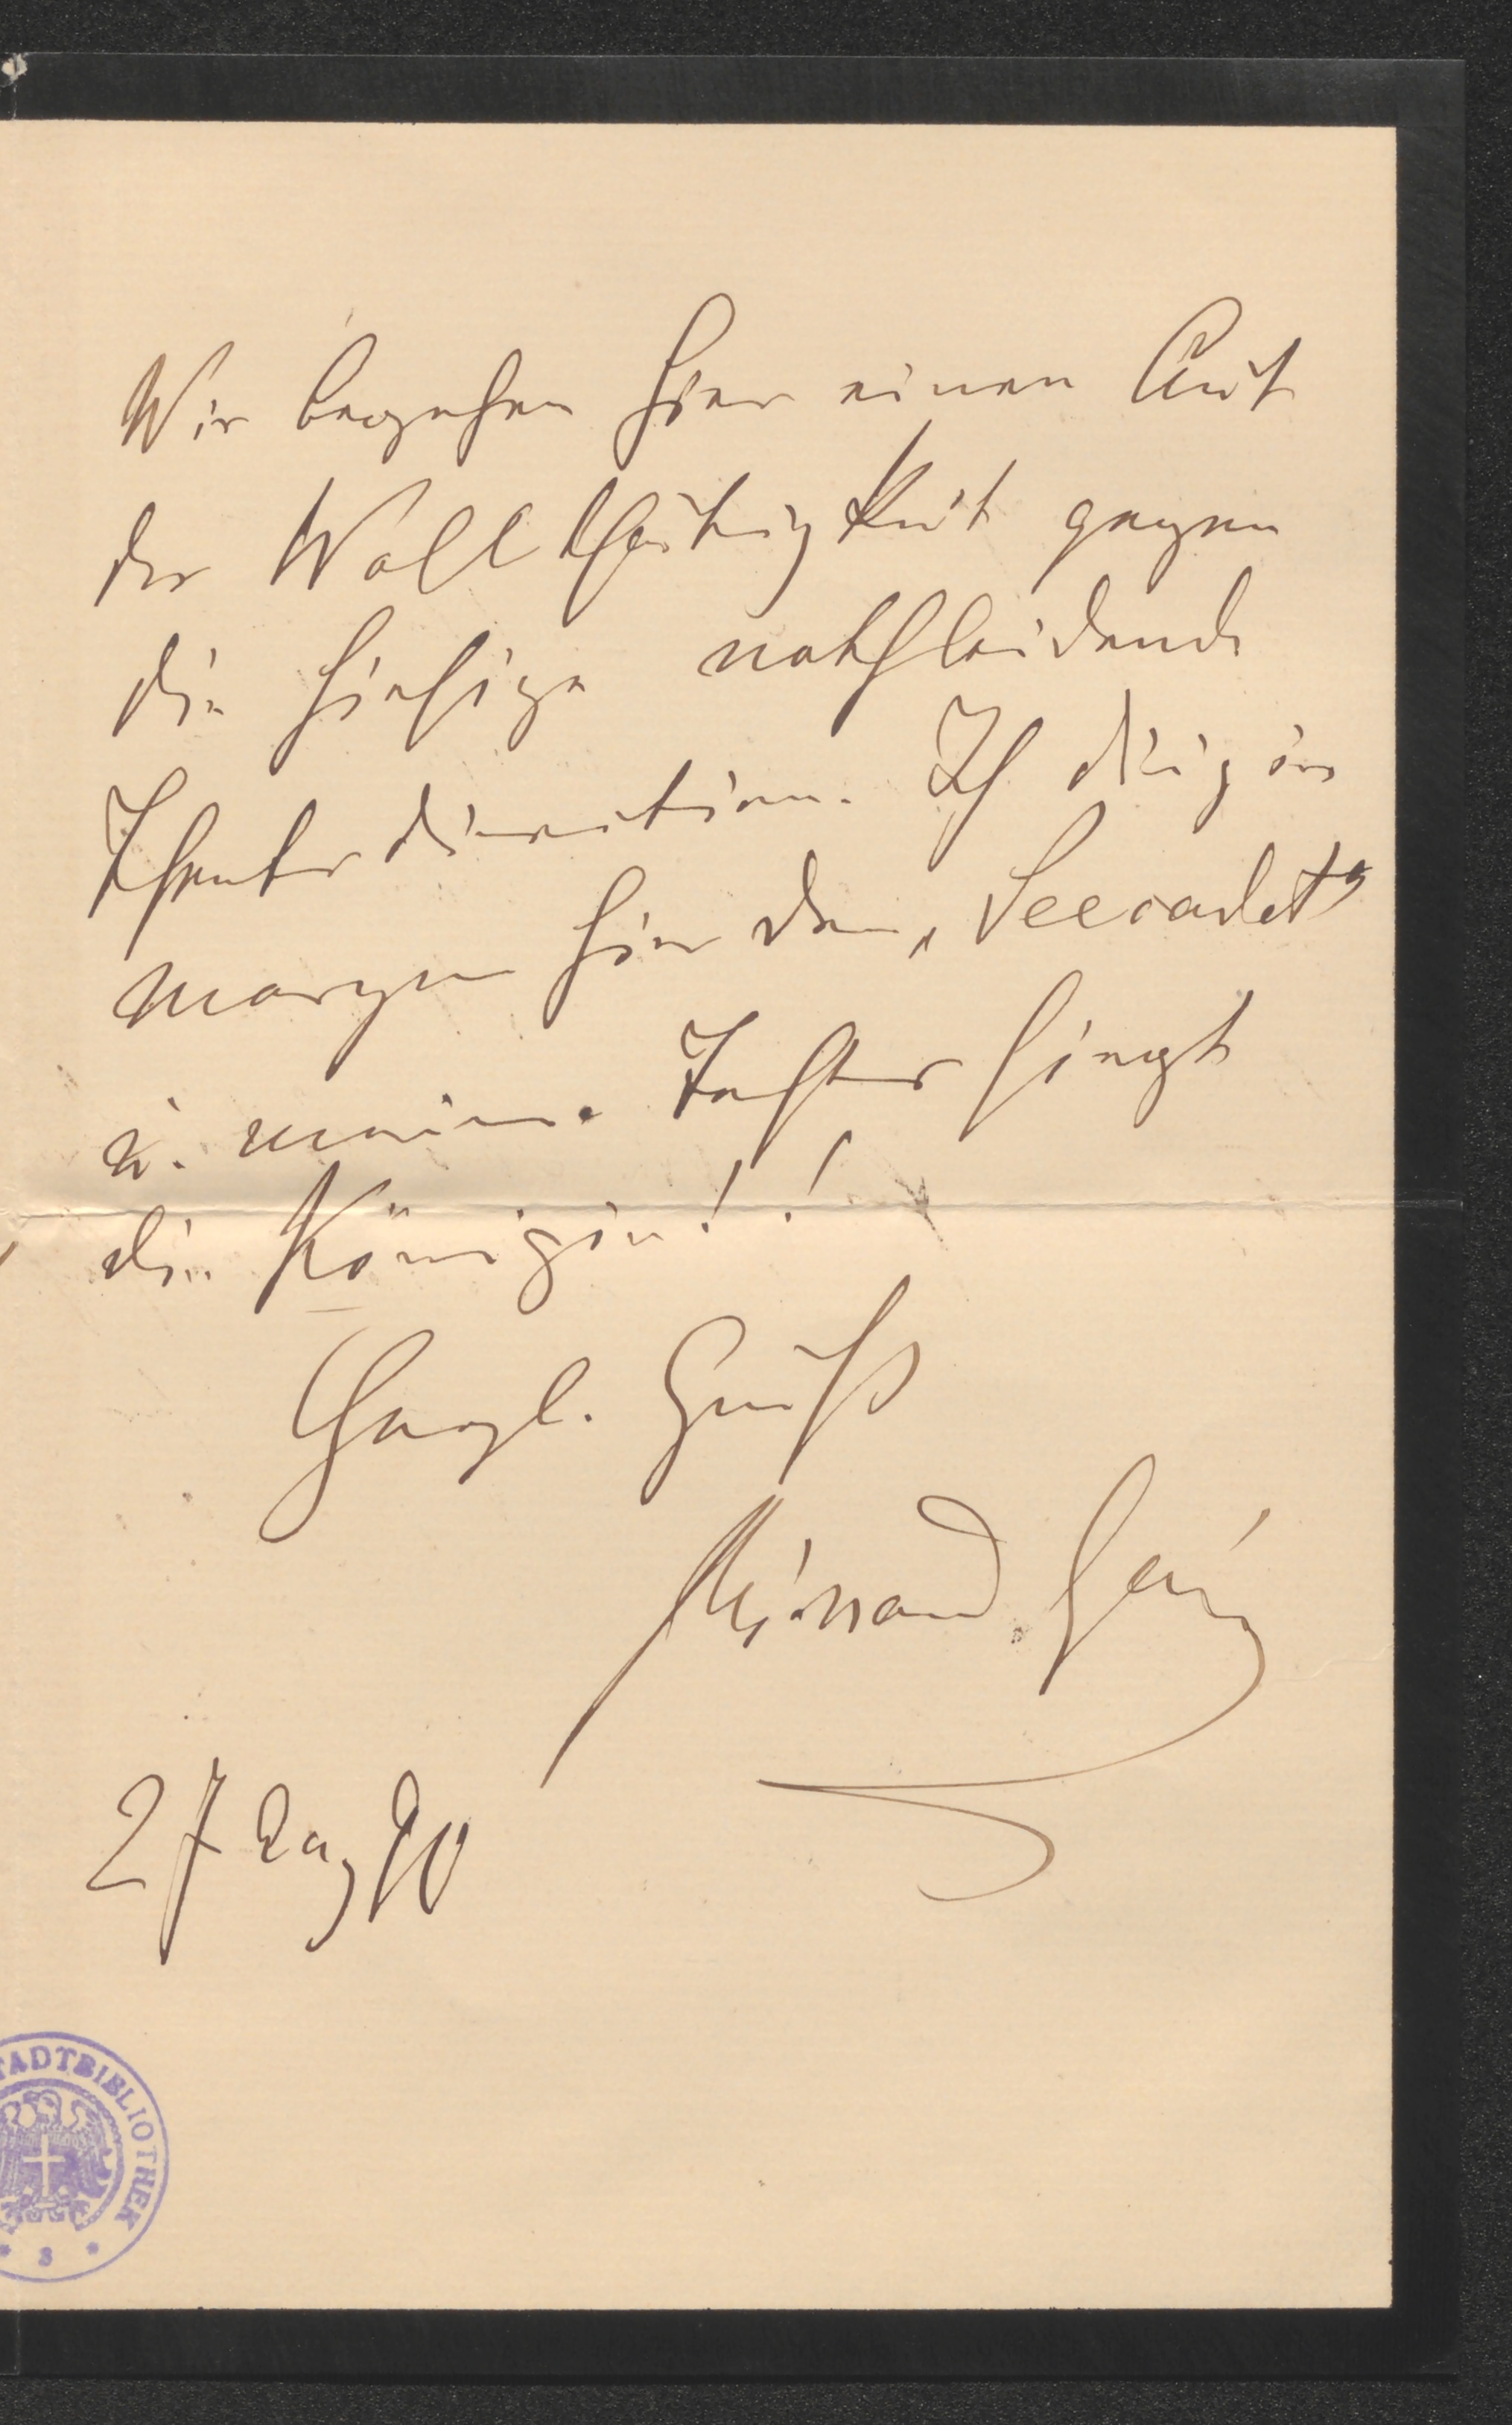 Wir begehen hier einen Act
der Wohlthätigkeit gegen
die hiesige nothleidende
Theaterdirection. Ich dirigire
morgen hier den „Seecadet“
u. meine Tochter singt
die Königin!!
Herzl. Gruß
Richard Genée
27 Aug 90
TADTBIBLIOTHEK
* 3 *